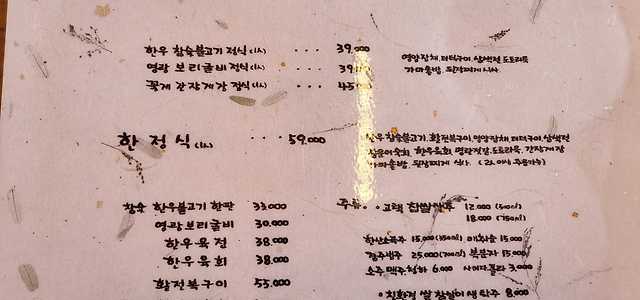 한우 참숯불고기 정식 (1人) ... 39,000
영광 보리굴비 정식 (1人) ... 39,
꽃게 간장게장 정식 (1人) ... 45,
영양잡채, 더덕구이, 삼색전, 도토리묵
가마솥밥, 된장찌개 식사
한 정 식 (1人) ... 59,000
참숯불고기, 황전복구이, 영양잡채, 더덕구이, 삼색전
한우육회, 명란젓갈, 도토리묵, 간장게장
가마솥밥, 된장찌개 식사 (2人 이상 주문가능)
참숯 한우불고기 한판 33,000
영광보리굴비 30,000
한우육전 38,000
한우육회 38,000
황전복구이 55,000
주류. 고택 찹쌀 12,000 (500㎖)
18,000 (750㎖)
한산소곡주 15,000 매화술 15,000
25,000 (700㎖) 복분자 15,000
소주 맥주 청하 6,000 사이다 콜라 3,000
친환경 쌀 생 탁주 8,000